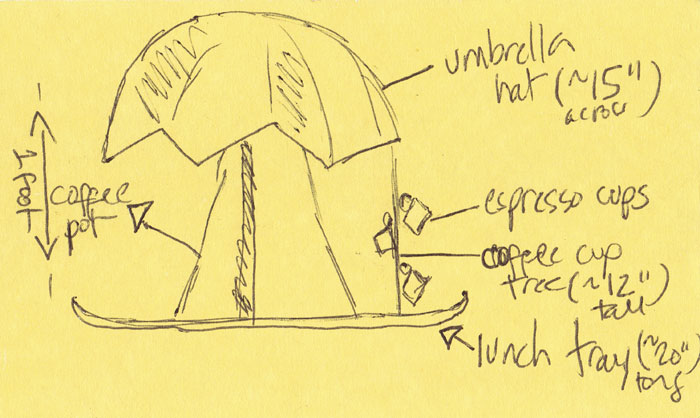 umbrella
hat (~15"
across)
1 foot
coffee
pot
espresso cups
coffee cup
tree (~12"
tall)
lunch tray (~20"
long)